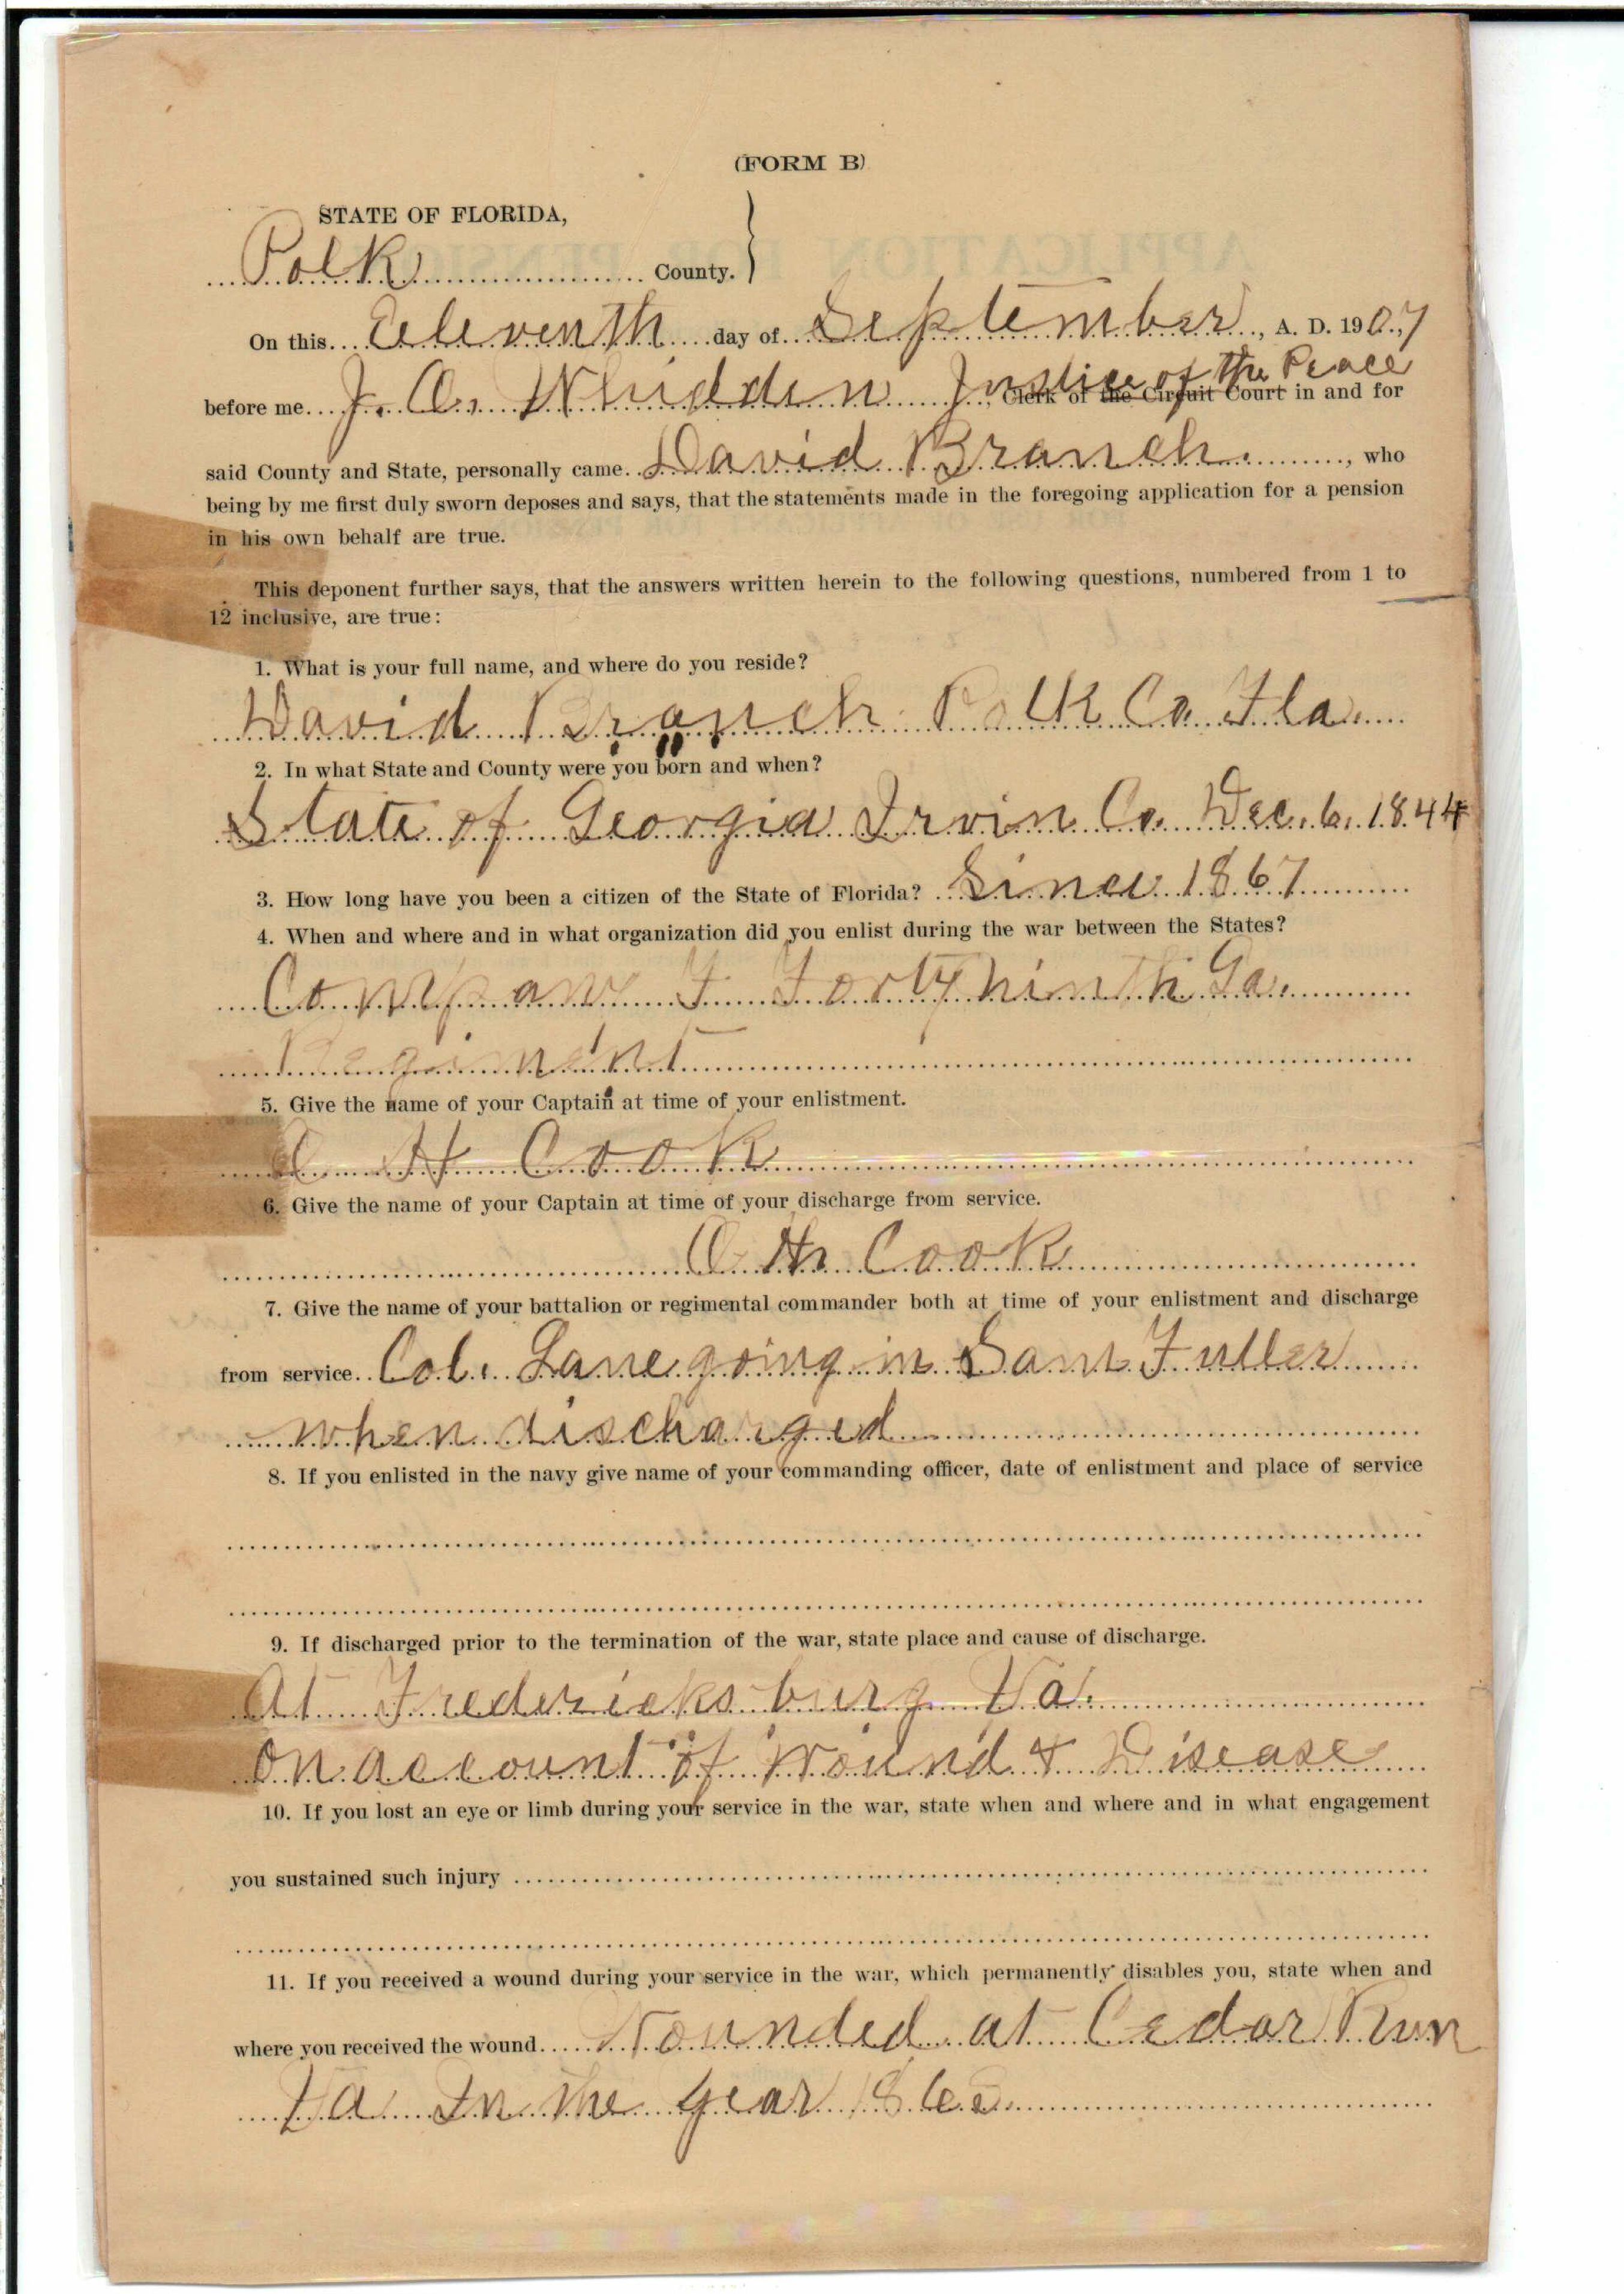 (FORM B)
STATE OF FLORIDA,
Polk County.
On this Eeleventh day of September, A. D. 1907
before me J. O. Whidden Justice of the Peace Clerk of the Circuit Court in and for
said County and State, personally came David Branch, who
being by me first duly sworn deposes and says, that the statements made in the foregoing application for a pension
in his own behalf are true.
This deponent further says, that the answers written herein to the following questions, numbered from 1 to
12 inclusive, are true:
1. What is your full name, and where do you reside?
David Branch Polk Co. Fla.
2. In what State and County were you born and when?
State of Georgia Irvin Co. Dec. 6. 1844
3. How long have you been a citizen of the State of Florida? Since 1867
4. When and where and in what organization did you enlist during the war between the States?
Company F. Forty ninth Ga.
Regiment
5. Give the name of your Captain at time of your enlistment.
O H Cook
6. Give the name of your Captain at time of your discharge from service.
O. H. Cook
7. Give the name of your battalion or regimental commander both at time of your enlistment and discharge
from service. Col. Lane going in Sam Fuller
when discharged
8. If you enlisted in the navy give name of your commanding officer, date of enlistment and place of service
9. If discharged prior to the termination of the war, state place and cause of discharge.
At Fredericksburg Va.
on account of Wound & Disease
10. If you lost an eye or limb during your service in the war, state when and where and in what engagement
you sustained such injury
11. If you received a wound during your service in the war, which permanently disables you, state when and
where you received the wound. Wounded at Cedar Run
Va In the year